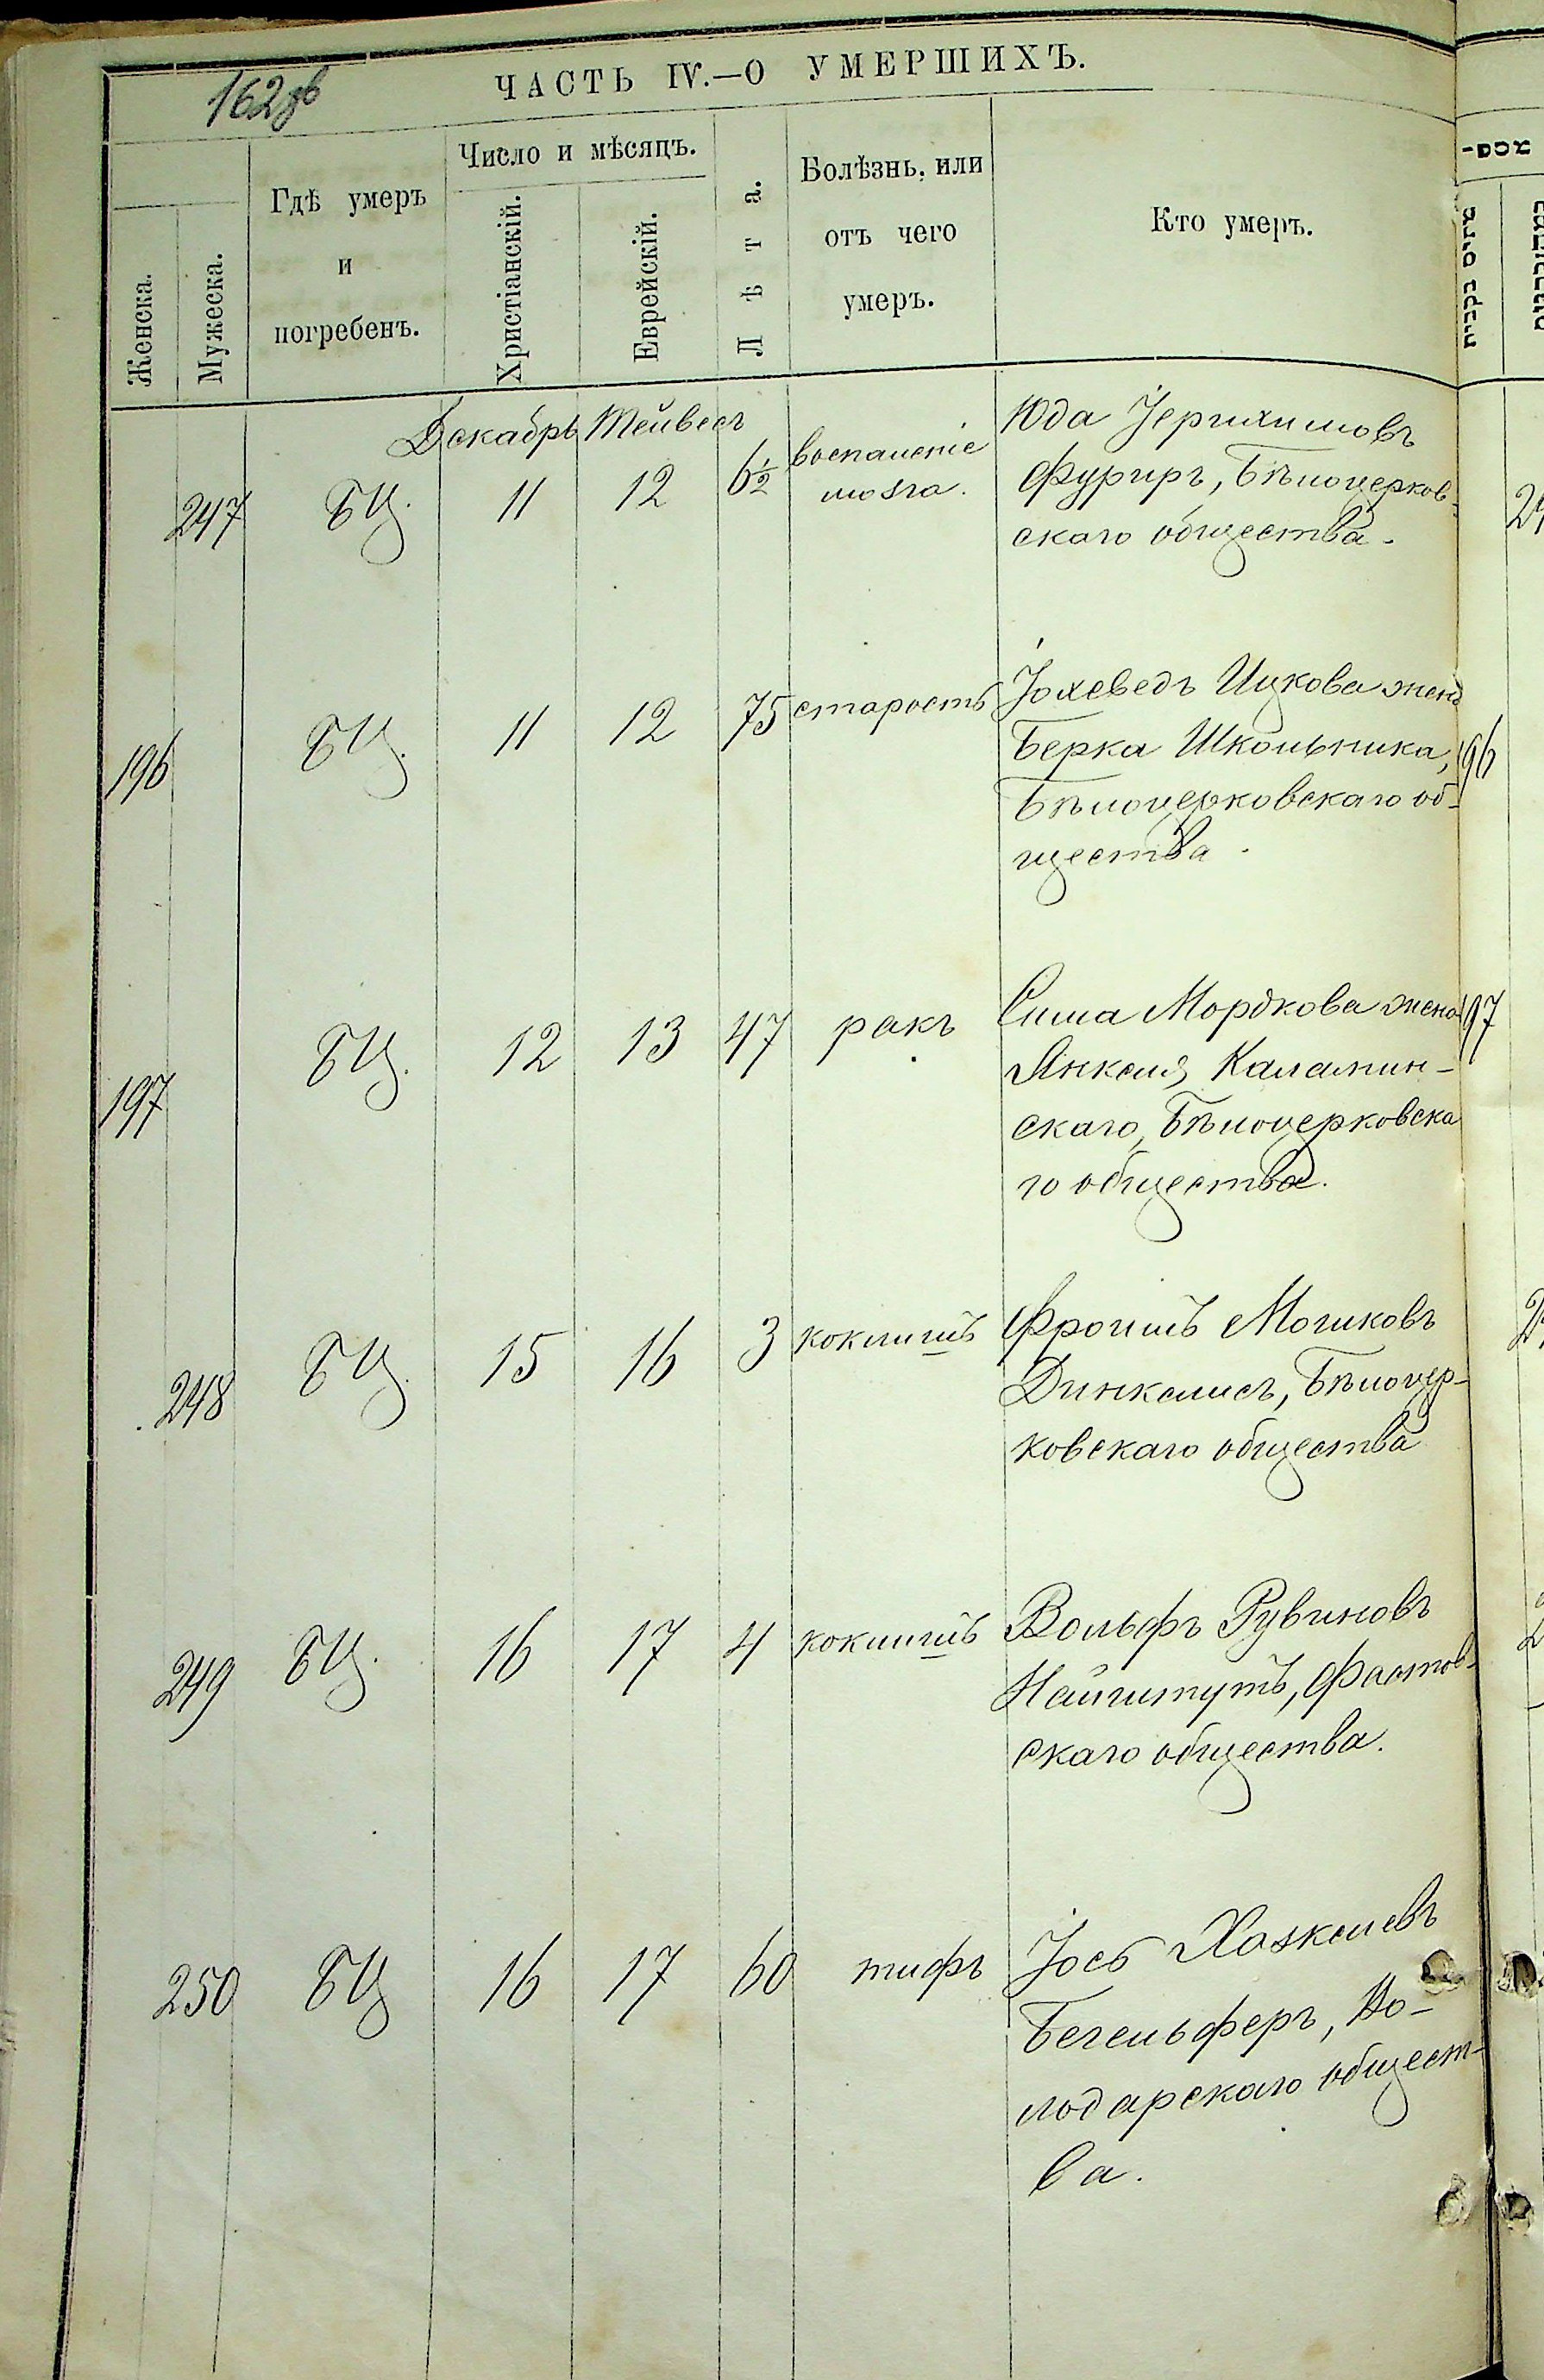 162 об
ЧАСТЬ IV.—О УМЕРШИХЪ.
Женска.
Мужеска.
Гдѣ умеръ
и
погребенъ.
Число и мѣсяцъ.
Христіанскій.
Еврейскій.
Лѣта.
Болѣзнь, или
отъ чего
умеръ.
Кто умеръ.
Декабрь Тейвесъ
247 БЦ. 11 12 6½ воспаленіе
мозга.
Юда Іерухимовъ
Фуриръ, Бѣлоцерков-
скаго общества.
196 БЦ. 11 12 75 старость
Іохеведъ Ицкова жена
Берка Школьника,
Бѣлоцерковскаго об-
щества.
96
197 БЦ. 12 13 47 ракъ
Сима Мордкова жена
Янкеля Каламин-
скаго, Бѣлоцерковска
го общества.
97
248 БЦ. 15 16 3 коклюшъ
Фроимъ Мошковъ
Динкелисъ, Бѣлоцер-
ковскаго общества
249 БЦ. 16 17 4 коклюшъ
Вольфъ Рувиновъ
Фастов-
скаго общества.
250 БЦ 16 17 60 тифъ
Іось Хаскелевъ
Бегельферъ, Во-
лодарскаго общест-
ва.